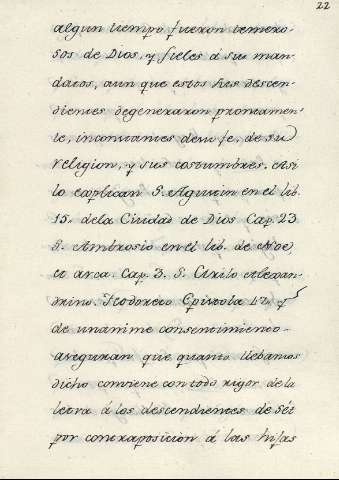 22
algun tiempo fueron temero-
sos de Dios, y fieles á su man-
datos, aun que estos sus descen-
dientes degeneraron prontamen-
te, inconstantes de su fe, de su
religion, y sus costumbres. Asi
lo explican S. Agustin en el lib.
15. dela Ciudad de Dios Cap. 23
S. Ambrosio en el lib. de Noe,
et arca. Cap. 3. S. Cirilo Alexan-
drino. Teodoreto Epistola 47. y
de unanime consentimiento-
aseguran que quanto llebamos
dicho conviene con todo rigor de la
letra á los descendientes de Sét
por contraposicion á las hijas